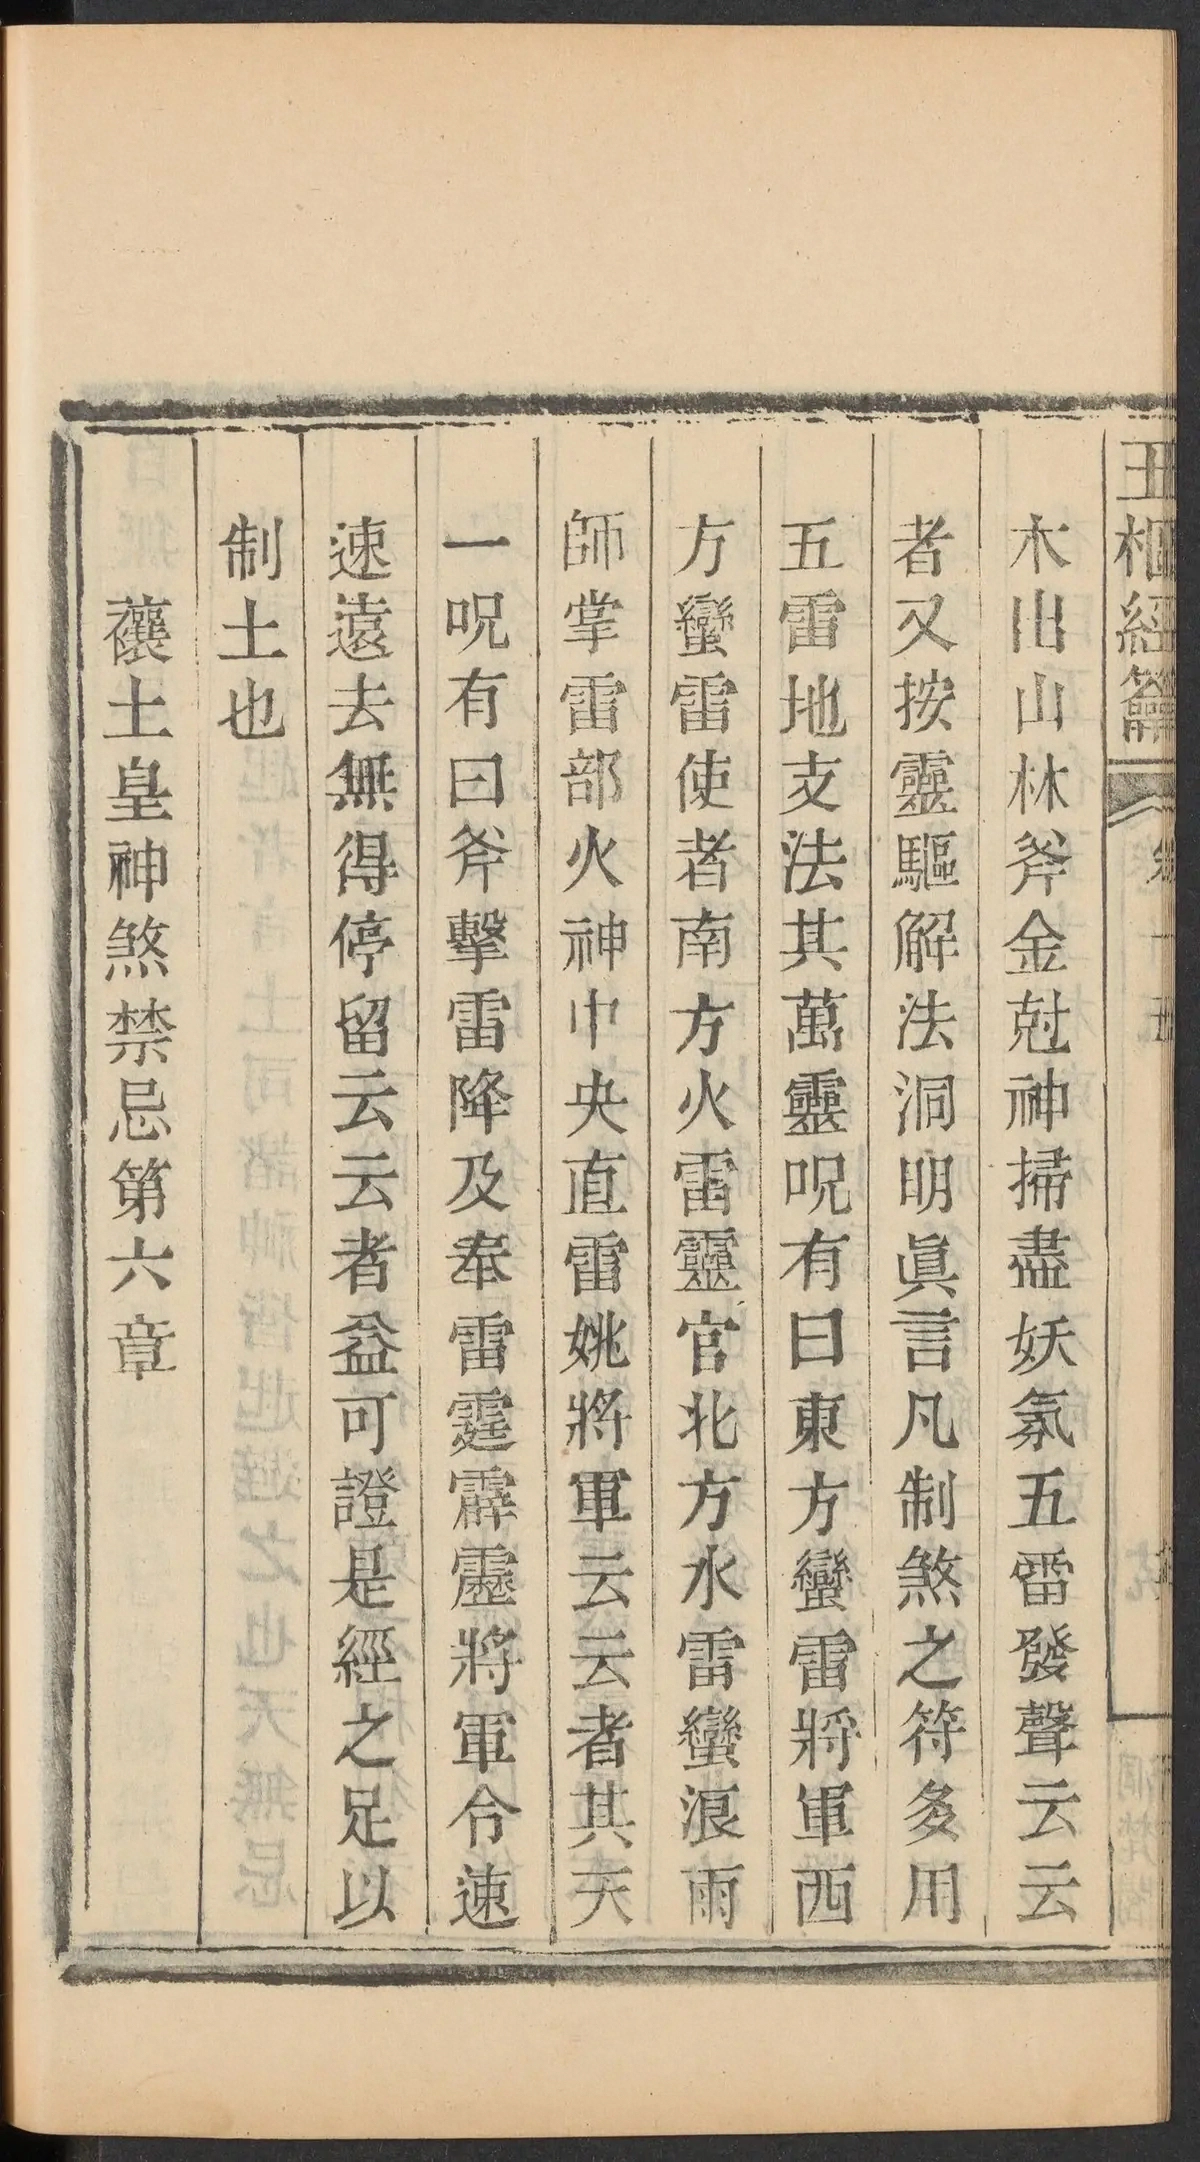 玉樞經籥
卷十五
木出山林斧金尅神掃盡妖氛五雷發聲云云
者又按靈驅解法洞明眞言凡制煞之符多用
五雷地支法其萬靈呪有曰東方蠻雷將軍西
方蠻雷使者南方火雷靈官北方水雷蠻浪雨
師掌雷部火神中央直雷姚將軍云云者其天
一呪有曰斧擊雷降及奉雷霆霹靂將軍令速
速遠去無得停留云云者益可證是經之足以
制土也
禳土皇神煞禁忌第六章